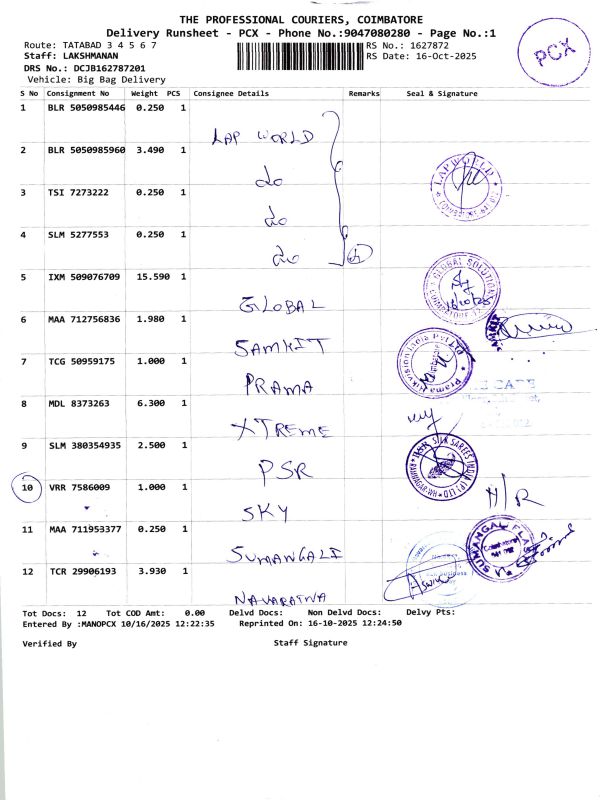 THE PROFESSIONAL COURIERS, COIMBATORE
Delivery Runsheet - PCX - Phone No.:9047080280 - Page No.:1
Route: TATABAD 3 4 5 6 7
Staff: LAKSHMANAN
DRS No.: DCJB162787201
Vehicle: Big Bag Delivery
RS No.: 1627872
RS Date: 16-Oct-2025
PCX
S No Consignment No Weight PCS Consignee Details Remarks Seal & Signature
1 BLR 5050985446 0.250 1 LAP WORLD
2 BLR 5050985960 3.490 1 do
LAPWORLD
3 TSI 7273222 0.250 1 do
4 SLM 5277553 0.250 1 do
4
5 IXM 509076709 15.590 1 GLOBAL
GLOBAL SOLUTIONS
6 MAA 712756836 1.980 1 SAMKIT
7 TCG 50959175 1.000 1 PRAMA
Prama Hikvision India Pvt Ltd
8 MDL 8373263 6.300 1 XTREME
9 SLM 380354935 2.500 1 PSR
PSR SILK SAREES INDIA (P) LTD
10 VRR 7586009 1.000 1 SKY
H/R
11 MAA 711953377 0.250 1 SUMANGALI
SUMANGALI
12 TCR 29906193 3.930 1 NAVARATNA
Tot Docs: 12 Tot COD Amt: 0.00 Delvd Docs: Non Delvd Docs: Delvy Pts:
Entered By :MANOPCX 10/16/2025 12:22:35 Reprinted On: 16-10-2025 12:24:50
Verified By Staff Signature